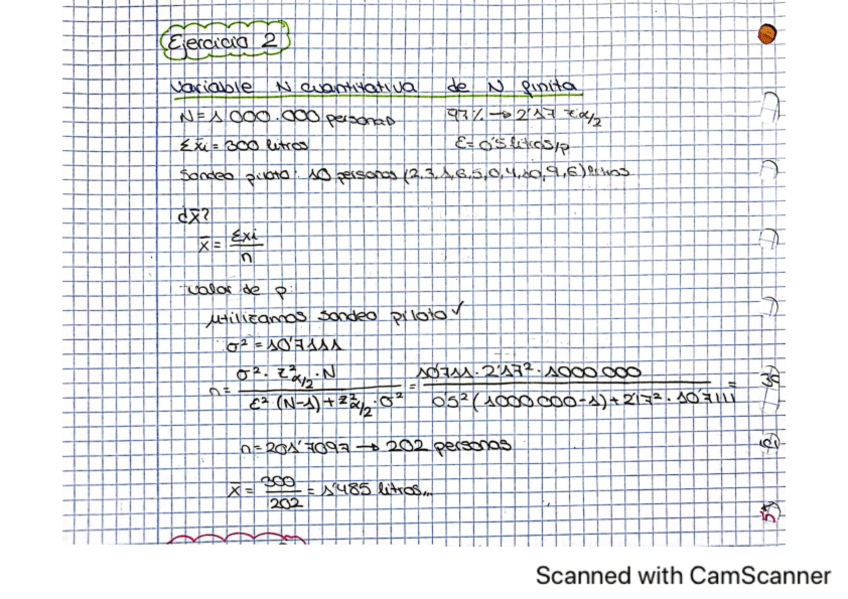 Ejercicio 2
Variable N cuantitativa de N finita
N = 1 000.000 personas 97% → 2'17 z α/2
Σxi = 300 litros ε = 0'5 litros/p
Sondeo piloto: 10 personas (2,3,1,6,5,0,4,10,9,6) litros
d x̄?
x̄ = Σxi / n
valor de p:
utilizamos sondeo piloto ✓
σ² = 10'7111
n = σ² · z²α/2 · N / ε² (N-1) + z²α/2 · σ² = 10'711 · 2'17² · 1000 000 / 0'5² (1000 000 - 1) + 2'17² · 10'7111 =
n = 201'7097 → 202 personas
x̄ = 300 / 202 = 1'485 litros...
Scanned with CamScanner